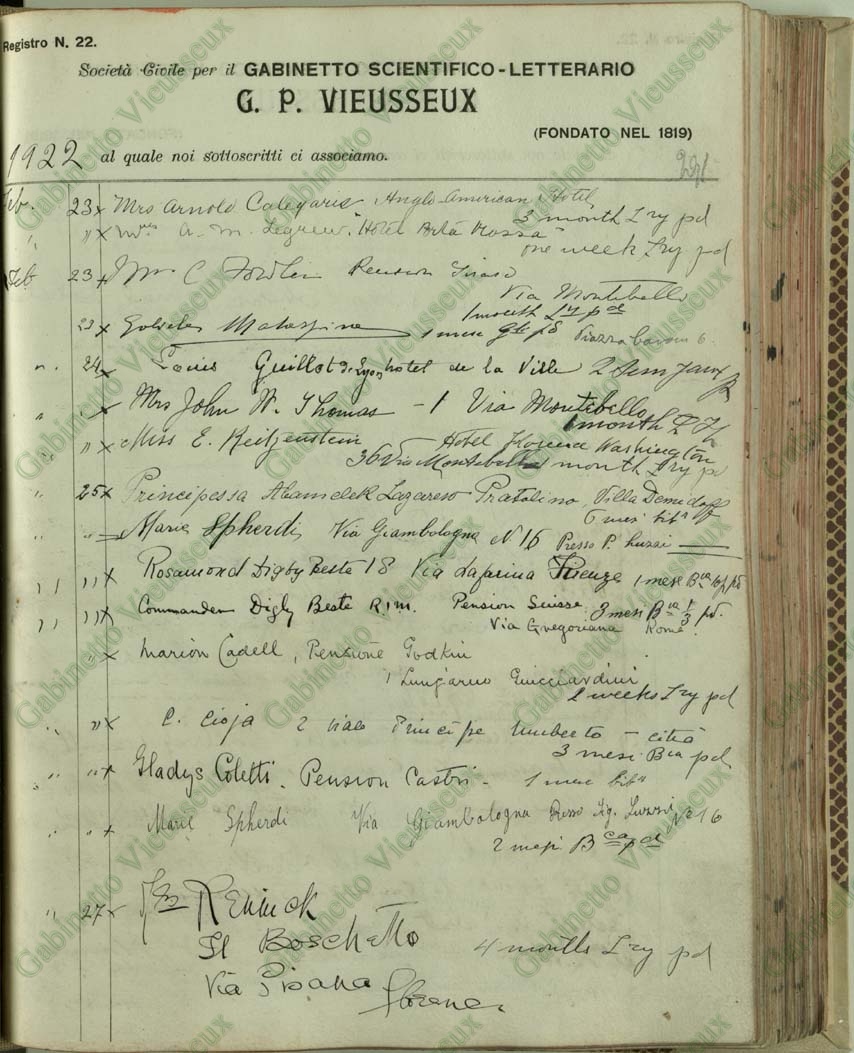 Registro N. 22.
Società Civile per il GABINETTO SCIENTIFICO-LETTERARIO
G. P. VIEUSSEUX
(FONDATO NEL 1819)
1922 al quale noi sottoscritti ci associamo.
Feb. 23 x Mrs Arnold Calegaris Anglo-American Hotel
3 month Lry pd
" x A. M. Legrew Hotel
one week Lry pd
Feb 23 x C Fowler Pension
Via Montebello
1 month Ly pd
23 x Malaspina 1 mese pd Piazza Cavour 6
" 24 x Louis Guillot hotel de la Ville 2
" x Mrs John W. Thomas - 1 Via Montebello
1 month
" " x Miss E. Reitzenstein Hotel Washington
36 Via Montebello 1 month Lry pd
" 25 x Principessa Abamelek Lazarew Pratolino, Villa Demidoff
6 mesi
" " Marie Spherdi Via Giambologna N 16 Presso
" " x Rosamond Digby Beste 18 Via Lafarina Firenze 1 mese
" " x Commander Digby Beste R.I.M. Pension Suisse 3 mesi pd.
Via Gregoriana Rome
" x Marion Cadell, Pensione Godkin
1 Lungarno Guicciardini
2 weeks Lry pd
" " x C. Cioja 2 viale Principe Umberto - città
3 mesi Bca pd
" " x Gladys Coletti. Pension Castri - 1 mese
" " x Marie Spherdi Via Giambologna No 16
2 mesi Bca pd
" 27 x Rennick
Il Boschetto 4 months Lry pd
Via Pisana Florence
Gabinetto Vieusseux